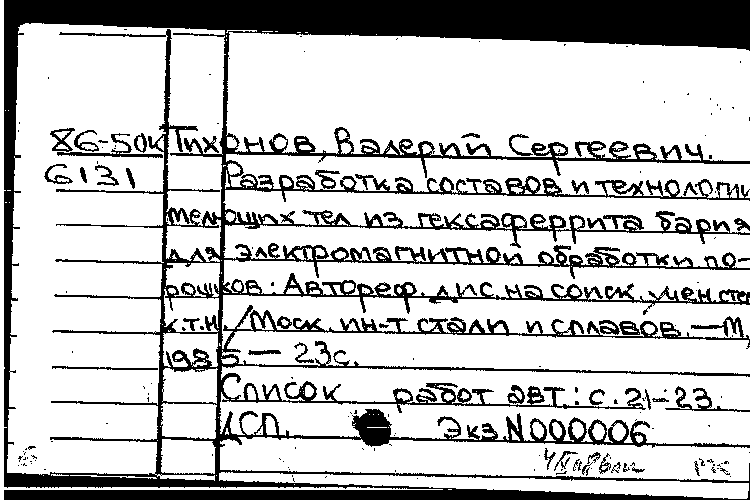 86-50к Тихонов, Валерий Сергеевич.
6131 Разработка составов и технологии
мелющих тел из гексаферрита бария
для электромагнитной обработки по-
рошков: Автореф. дис. на соиск. учен. степ.
к.т.н. / Моск. ин-т стали и сплавов. — М,
1985. — 23с.
Список работ авт.: с. 21-23.
ДСП. Экз. N000006